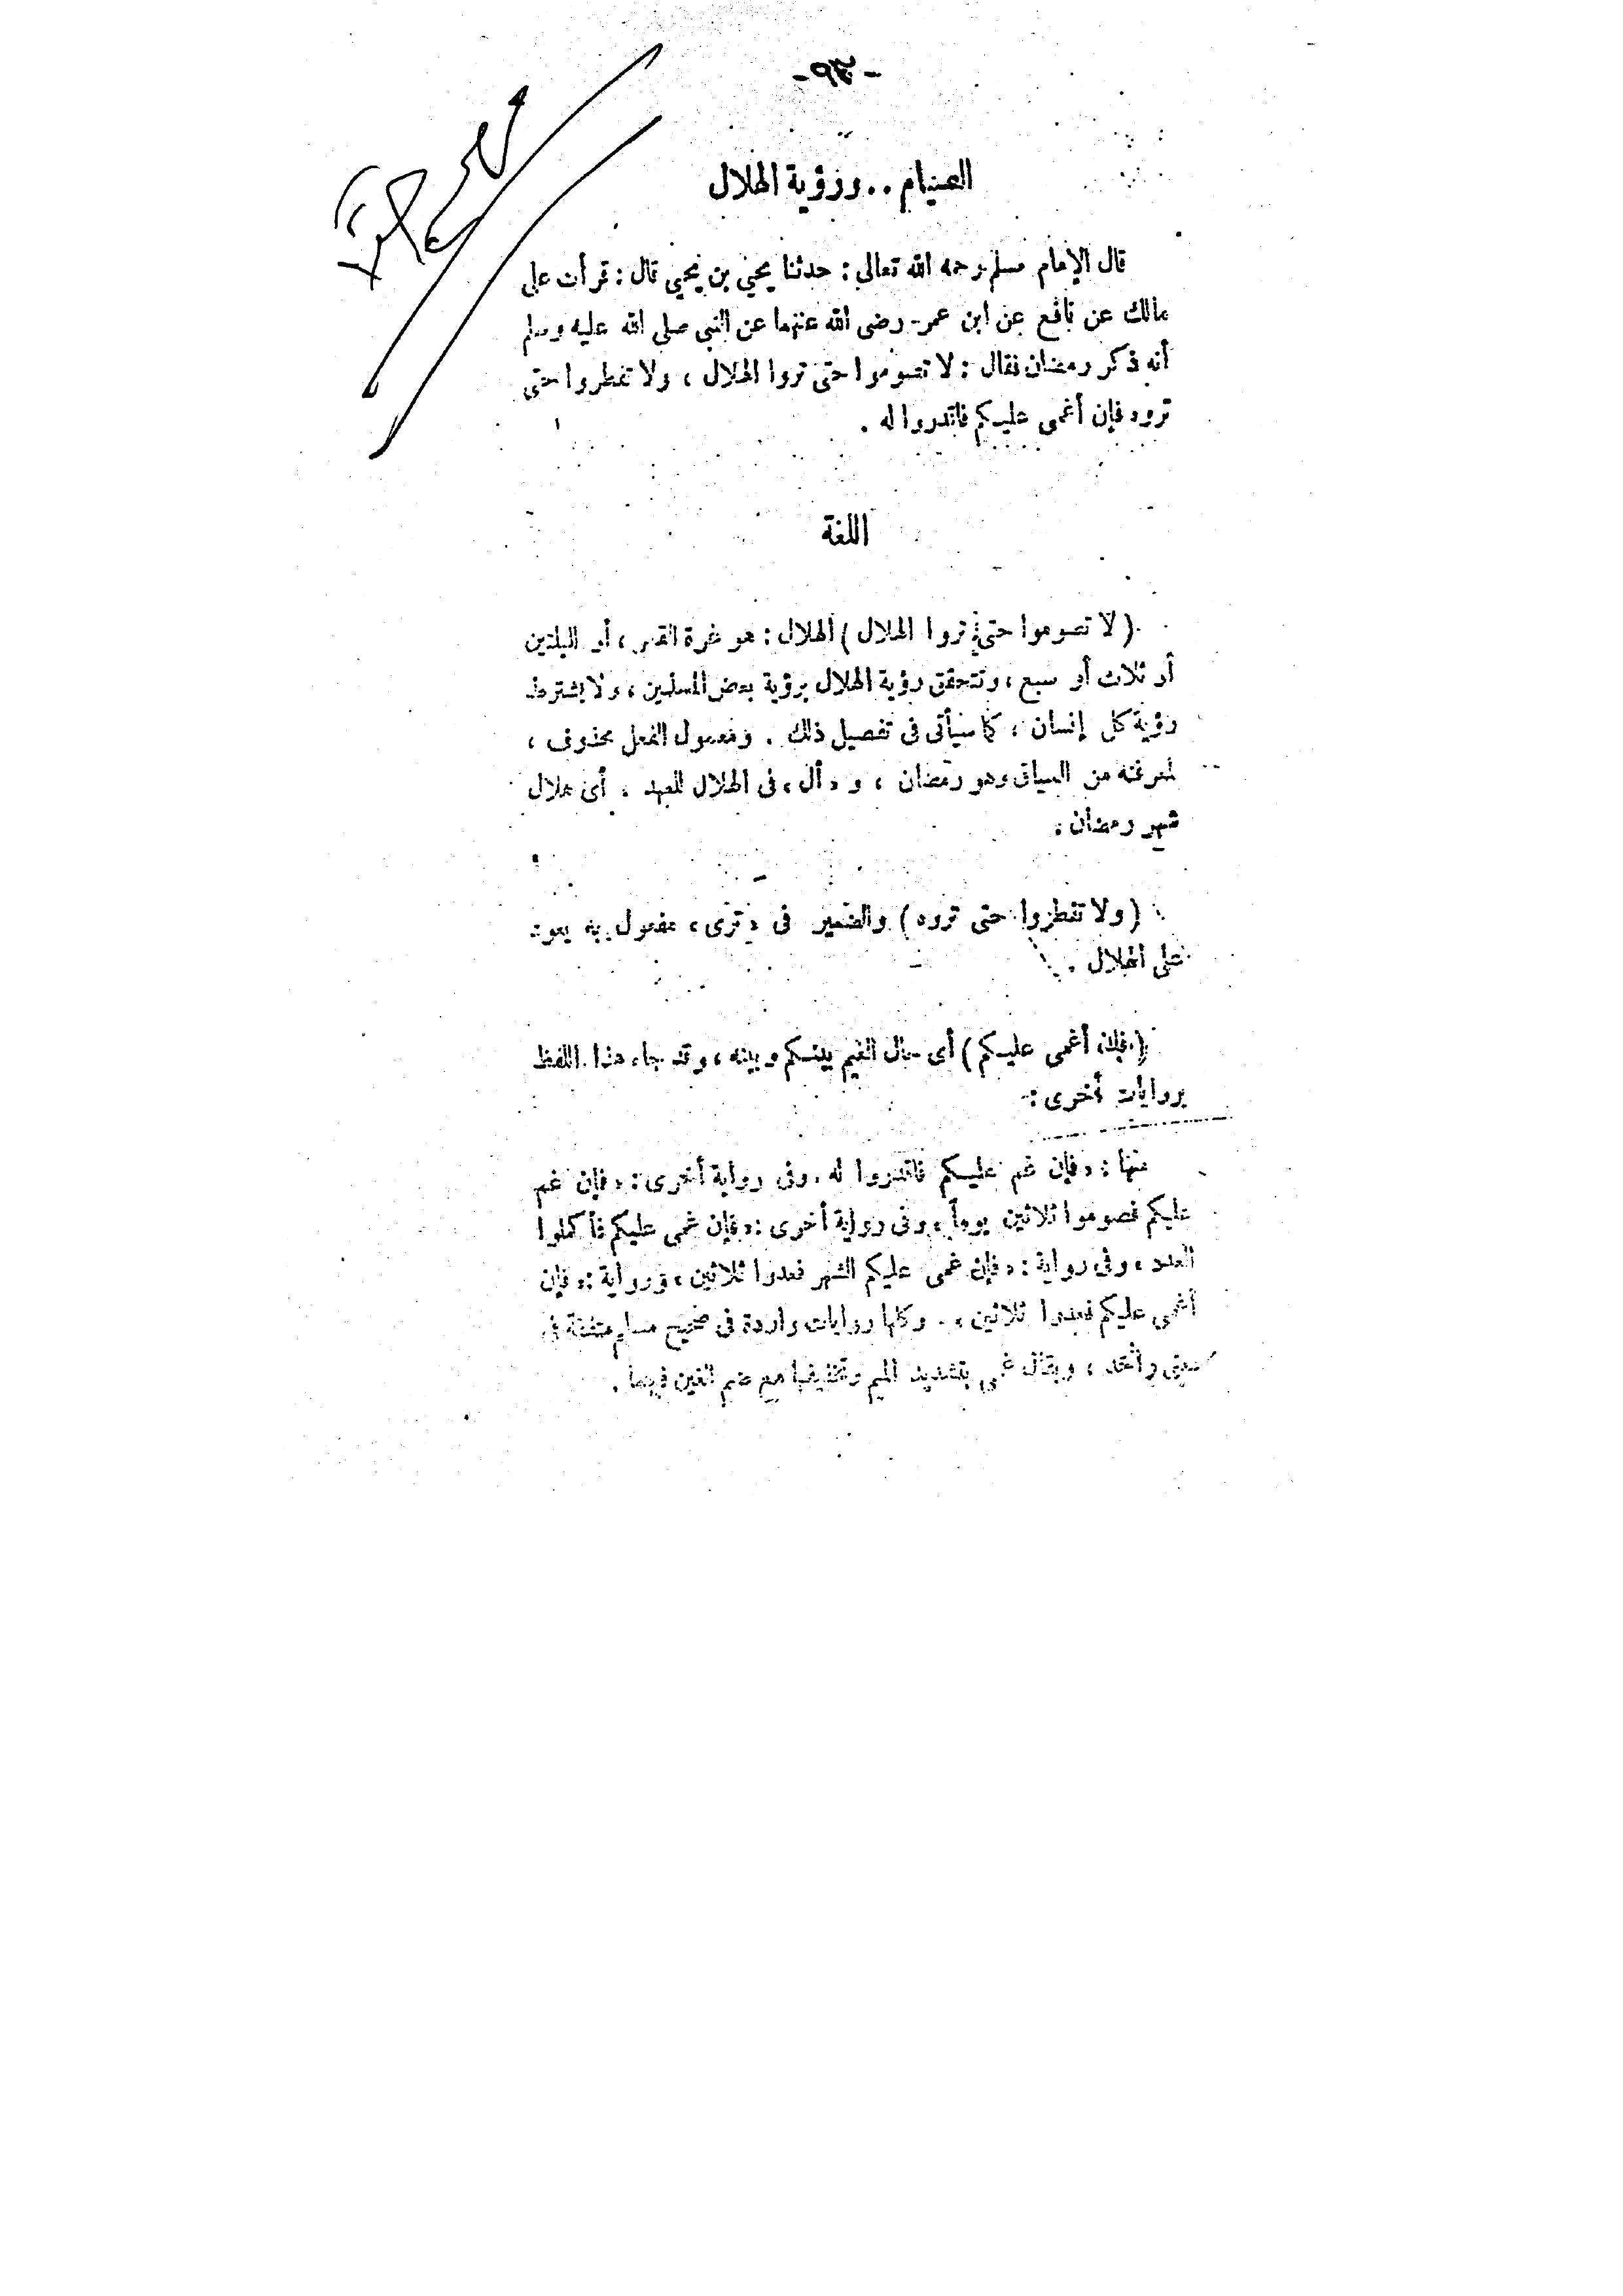 الصيام .. ورؤية الهلال
قال الإمام مسلم رحمه الله تعالى : حدثنا يحيى بن يحيى قال : قرأت على
مالك عن نافع عن ابن عمر - رضى الله عنهما عن النبى صلى الله عليه وسلم
أنه ذكر رمضان فقال : لا تصوموا حتى تروا الهلال ، ولا تفطروا حتى
تروه فإن أغمى عليكم فاقدروا له .
اللغة
( لا تصوموا حتى تروا الهلال ) الهلال : هو غرة القمر ، أو لليلتين
أو ثلاث أو سبع ، وتتحقق رؤية الهلال برؤية بعض المسلمين ، ولا يشترط
رؤية كل إنسان ، كما سيأتى فى تفصيل ذلك . ومعمول الفعل محذوف ،
لمعرفته من السياق وهو رمضان ، و « أل » فى الهلال للعهد . أى هلال
شهر رمضان .
( ولا تفطروا حتى تروه ) والضمير فى « ترى » مفعول به يعود
على الهلال .
( فإن أغمى عليكم ) أى حال الغيم بينكم وبينه ، وقد جاء هذا اللفظ
بروايات أخرى :
منها : « فإن غم عليكم فاقدروا له . وفى رواية أخرى : « فإن غم
عليكم فصوموا ثلاثين يوماً » وفى رواية أخرى : « فإن غمى عليكم فأكملوا
العدد » وفى رواية : « فإن غمى عليكم الشهر فعدوا ثلاثين » ورواية : « فإن
أغمى عليكم فعدوا ثلاثين » . وكلها روايات واردة فى صحيح مسلم متفقة فى
معنى واحد ، ويقال غمى بتشديد الميم وتخفيفها مع ضم الغين فيهما .